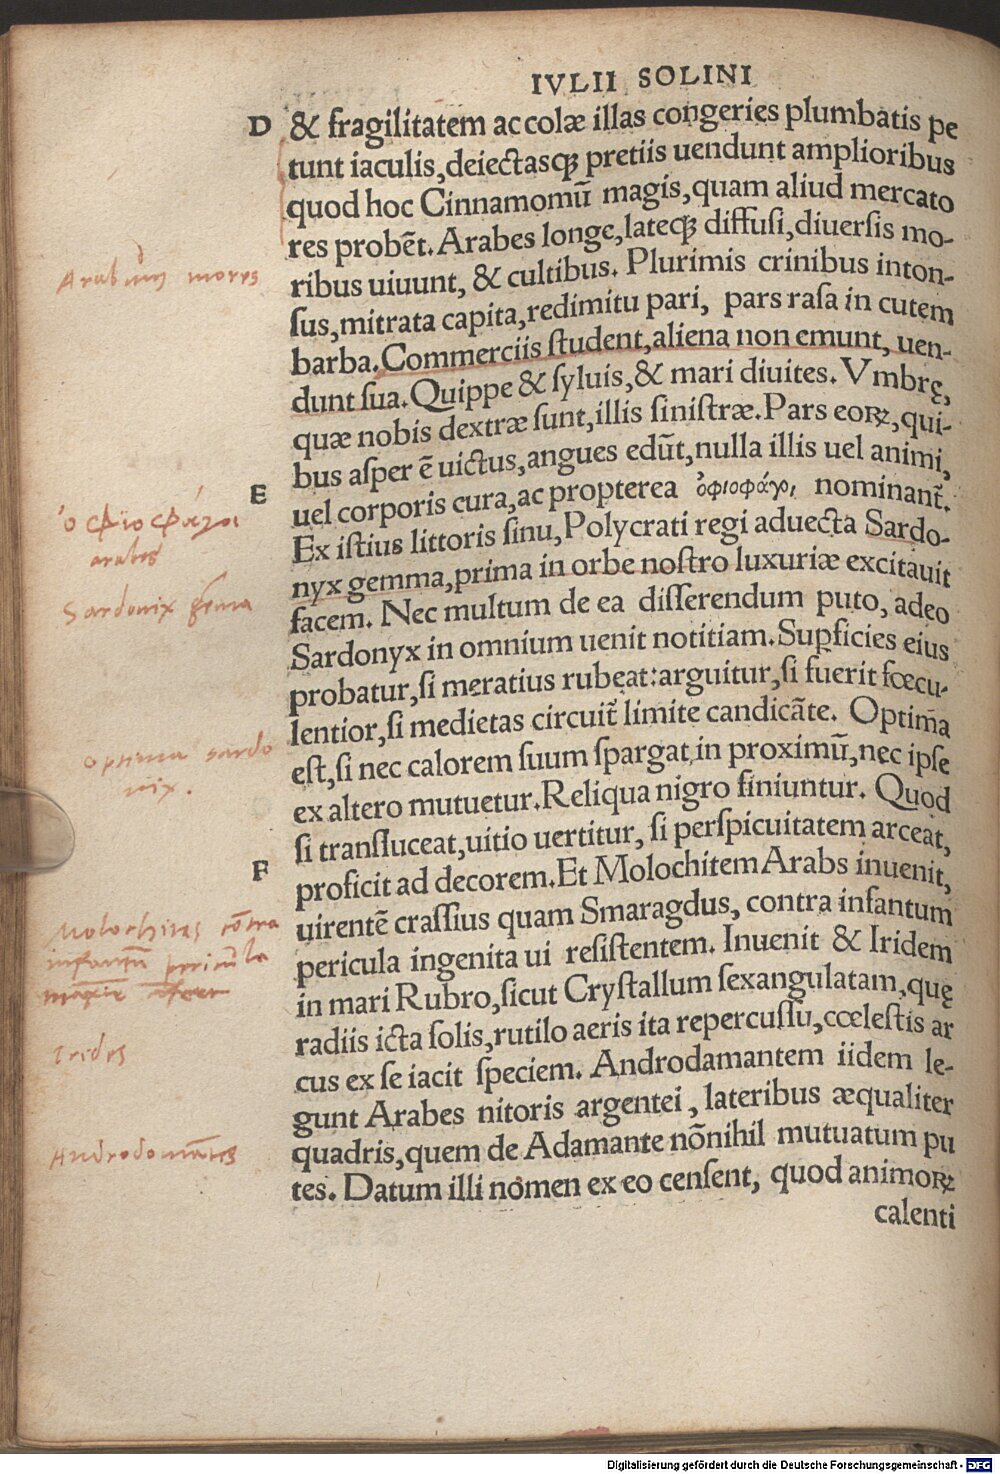 IVLII SOLINI
D & fragilitatem accolæ illas congeries plumbatis pe
tunt iaculis, deiectasq; pretiis uendunt amplioribus
quod hoc Cinnamomũ magis, quam aliud mercato
res probẽt. Arabes longe, lateq; diffusi, diuersis mo-
Arabum mores
ribus uiuunt, & cultibus. Plurimis crinibus inton-
sus, mitrata capita, redimitu pari, pars rasa in cutem
barba. Commerciis student, aliena non emunt, uen-
dunt sua. Quippe & syluis, & mari diuites. Vmbrę,
quæ nobis dextræ sunt, illis sinistræ. Pars eoꝝ, qui-
bus asper ẽ uictus, angues edũt, nulla illis uel animi,
E
uel corporis cura, ac propterea ὀφιοφάγοι nominant̃.
ὀφιοφάγοι
arabes
Ex istius littoris sinu, Polycrati regi aduecta Sardo-
nyx gemma, prima in orbe nostro luxuriæ excitauit
Sardonix gẽma
facem. Nec multum de ea disserendum puto, adeo
Sardonyx in omnium uenit notitiam. Suꝑficies eius
probatur, si meratius rubeat: arguitur, si fuerit fœcu-
lentior, si medietas circuit̃ limite candicãte. Optima
optima sardo
nix.
est, si nec calorem suum spargat in proximũ, nec ipse
ex altero mutuetur. Reliqua nigro finiuntur. Quod
si transluceat, uitio uertitur, si perspicuitatem arceat,
F
proficit ad decorem. Et Molochitem Arabs inuenit,
uirentẽ crassius quam Smaragdus, contra infantum
Molochites cõtra
infantũ pericula
pericula ingenita ui resistentem. Inuenit & Iridem
in mari Rubro, sicut Crystallum sexangulatam, quę
radiis icta solis, rutilo aeris ita repercussu, cœlestis ar
Irides
cus ex se iacit speciem. Androdamantem iidem le-
gunt Arabes nitoris argentei, lateribus æqualiter
quadris, quem de Adamante nõnihil mutuatum pu
Androdomãtes
tes. Datum illi nomen ex eo censent, quod animoꝝ
calenti
Digitalisierung gefördert durch die Deutsche Forschungsgemeinschaft - DFG